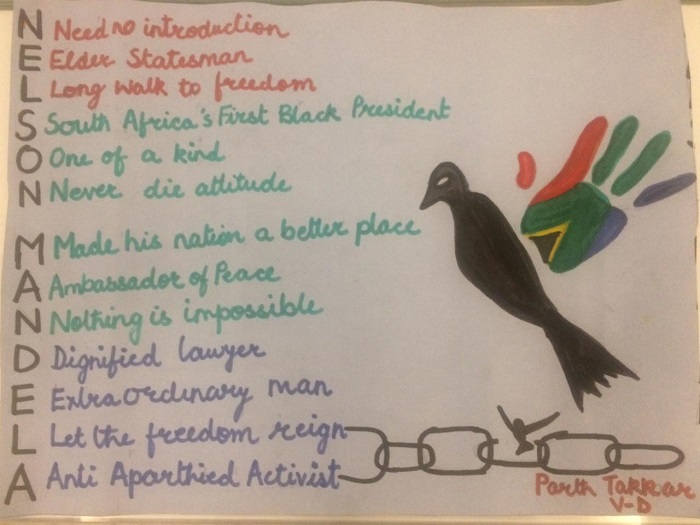 N Need no introduction
E Elder Statesman
L Long Walk to freedom
S South Africa's First Black President
O One of a kind
N Never die attitude
M Made his nation a better place
A Ambassador of Peace
N Nothing is impossible
D Dignified lawyer
E Extraordinary man
L Let the freedom reign
A Anti Aparthied Activist
Parth Takkar
V-D